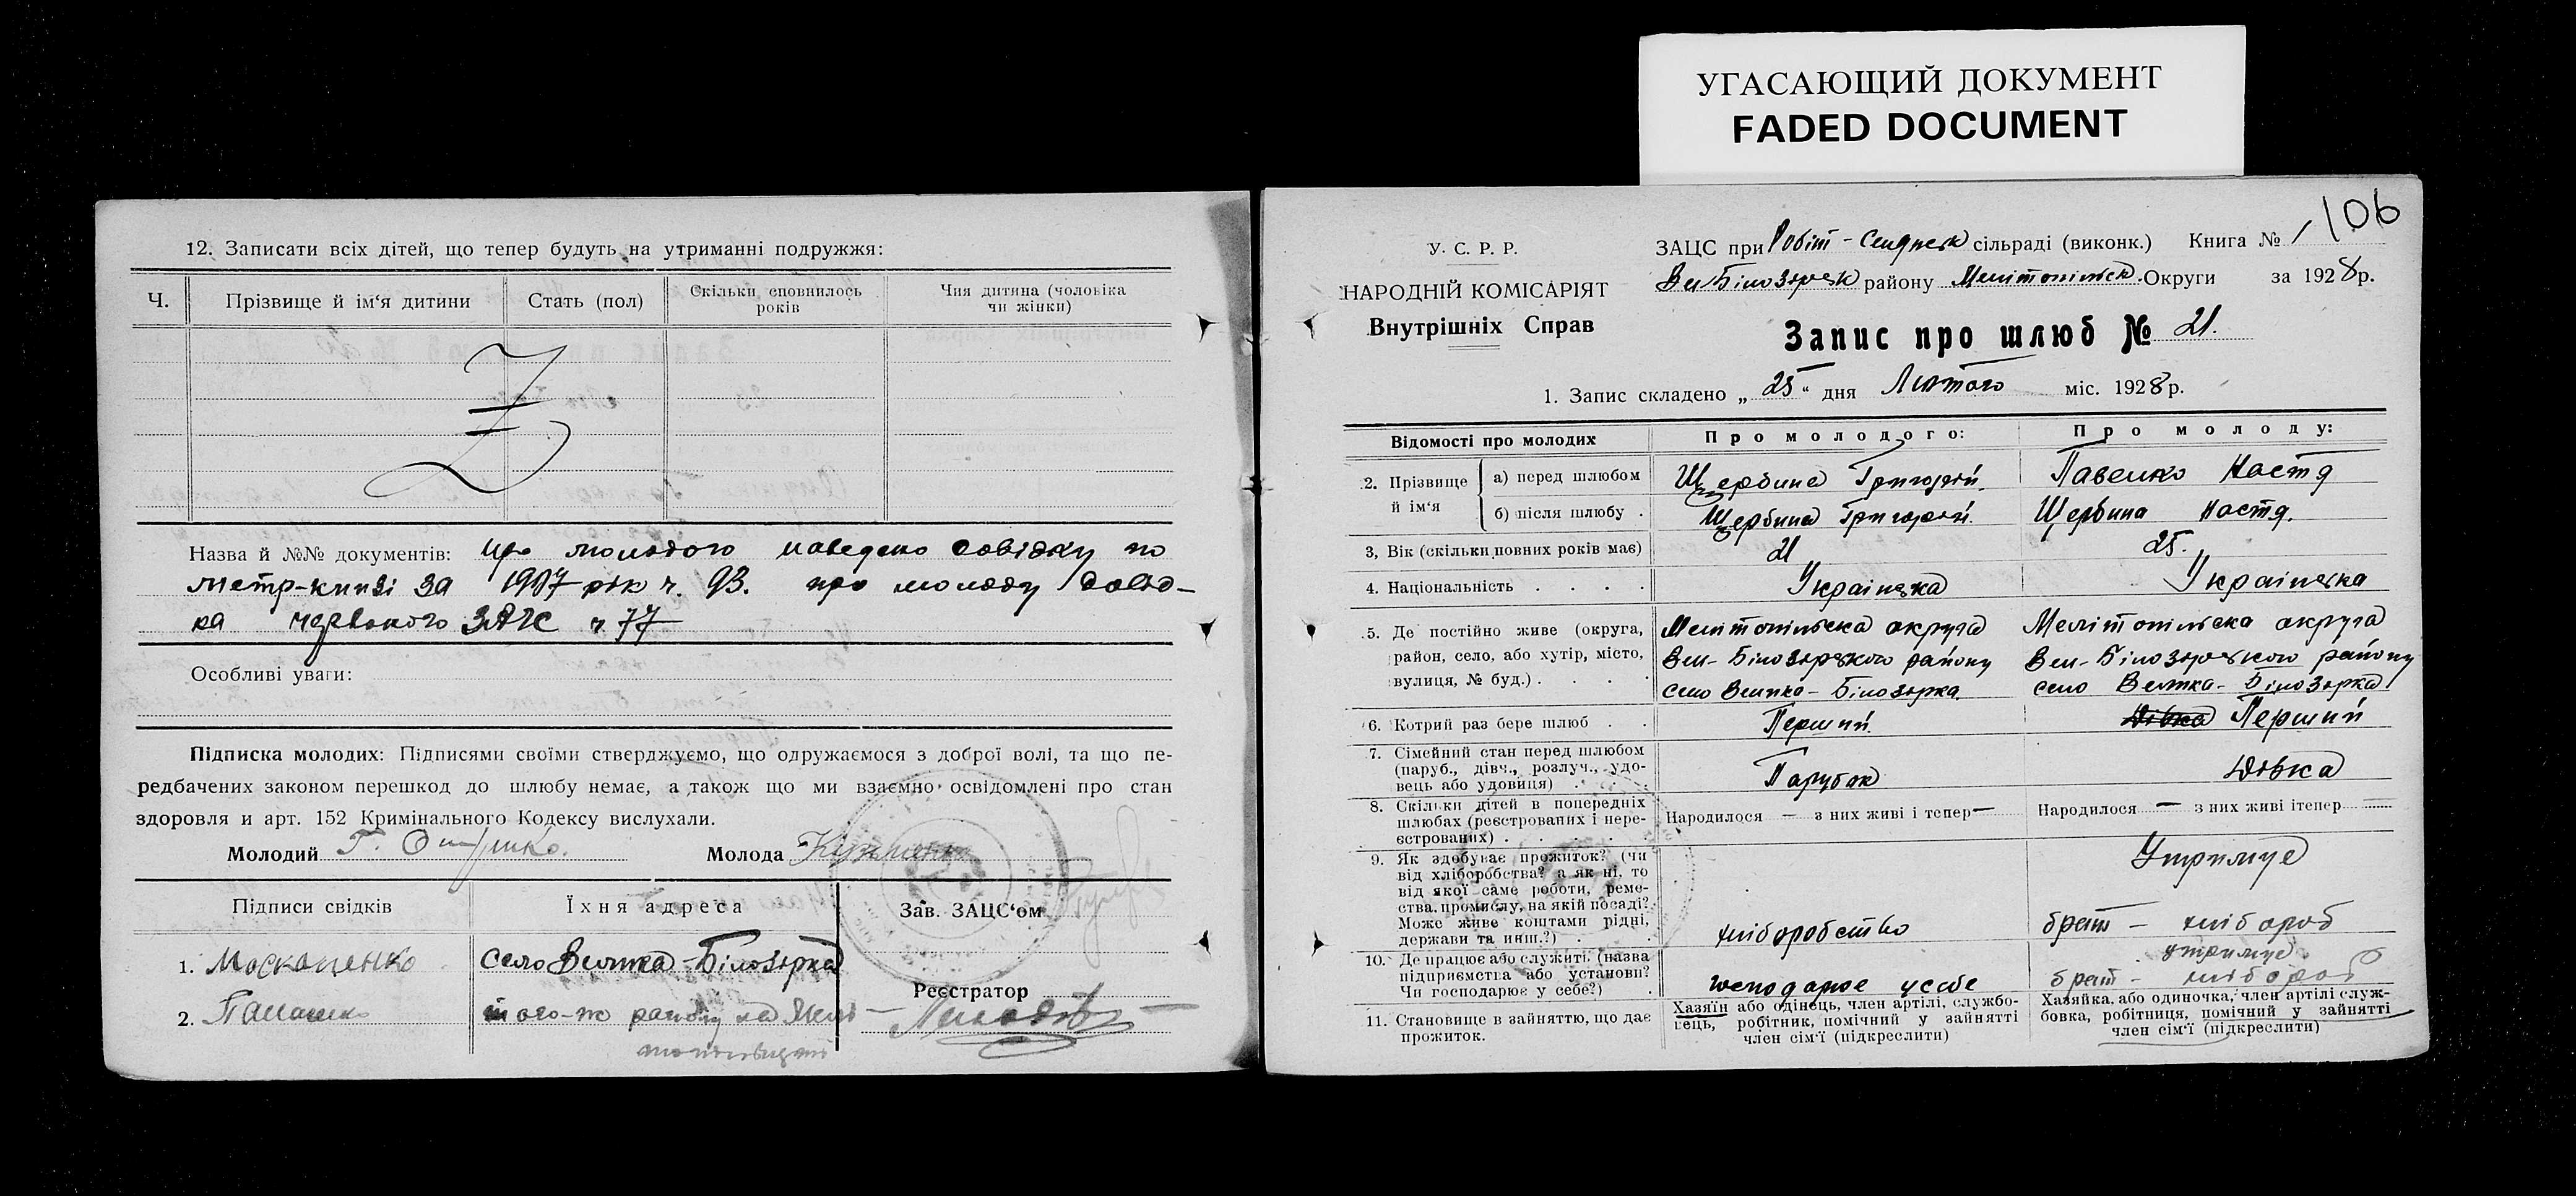 УГАСАЮЩИЙ ДОКУМЕНТ
FADED DOCUMENT
12. Записати всіх дітей, що тепер будуть на утриманні подружжя:
Ч. Прізвище й ім'я дитини Стать (пол) Скільки сповнилось років Чия дитина (чоловіка чи жінки)
Z
Назва й №№ документів: про молодого наведено довідку по
метр-книзі за 1907 рік ч. 93. про молоду довід-
ка червоного ЗАГС ч 77
Особливі уваги:
Підписка молодих: Підписями своїми стверджуємо, що одружаємося з доброї волі, та що пе-
редбачених законом перешкод до шлюбу немає, а також що ми взаємно освідомлені про стан
здоровля и арт. 152 Кримінального Кодексу вислухали.
Молодий Г. Молода
Підписи свідків Їхня адреса Зав. ЗАЦС'ом
1. Москаленко село Велика-Білозірка
Реєстратор
2. того-ж району на
106
У. С. Р. Р.
НАРОДНІЙ КОМІСАРІЯТ
Внутрішніх Справ
ЗАЦС при сільраді (виконк.) Книга № 1
Вел Білозірськ району Мелітопільськ. Округи за 1928 р.
Запис про шлюб № 21.
1. Запис складено „ 25 " дня Лютого міс. 1928 р.
Відомості про молодих Про молодого: Про молоду:
2. Прізвище й ім'я а) перед шлюбом Щербина Григорій Павенко Настя
б) після шлюбу . Щербина Григорій Щербина Настя.
3, Вік (скільки повних років має) 21 25.
4. Національність . . . . Українська Українська
5. Де постійно живе (округа, Мелітопільска округа Мелітопільска округа
район, село, або хутір, місто, Вел-Білозірського району Вел-Білозірського району
вулиця, № буд.) . . . . село Велика-Білозірка село Велика-Білозірка
6. Котрий раз бере шлюб . . Перший Дівка Перший
7. Сімейний стан перед шлюбом
(паруб., дівч., розлуч., удо-
вець або удовиця) . . . Парубок Дівка
8. Скільки дітей в попередніх
шлюбах (реєстрованих і нере-
єстрованих) . . . . . Народилося — з них живі і тепер — Народилося — з них живі ітепер —
9. Як здобуває прожиток? (чи Утримує
від хліборобства? а як ні, то
від якої саме роботи, реме-
ства, промислу, на якій посаді?
Може живе коштами рідні,
держави та инш.?) . . хліборобство брат — хлібороб
10. Де працює або служить (назва утримує
підприємства або установи?
Чи господарює у себе?) . господарює у себе брат — хлібороб
11. Становище в зайняттю, що дає
прожиток.
Хазяїн або одінець, член артілі, службо-
вець, робітник, помічний у зайнятті
член сім'ї (підкреслити)
Хазяйка, або одиночка, член артілі служ-
бовка, робітниця, помічний у зайнятті
член сім'ї (підкреслити)